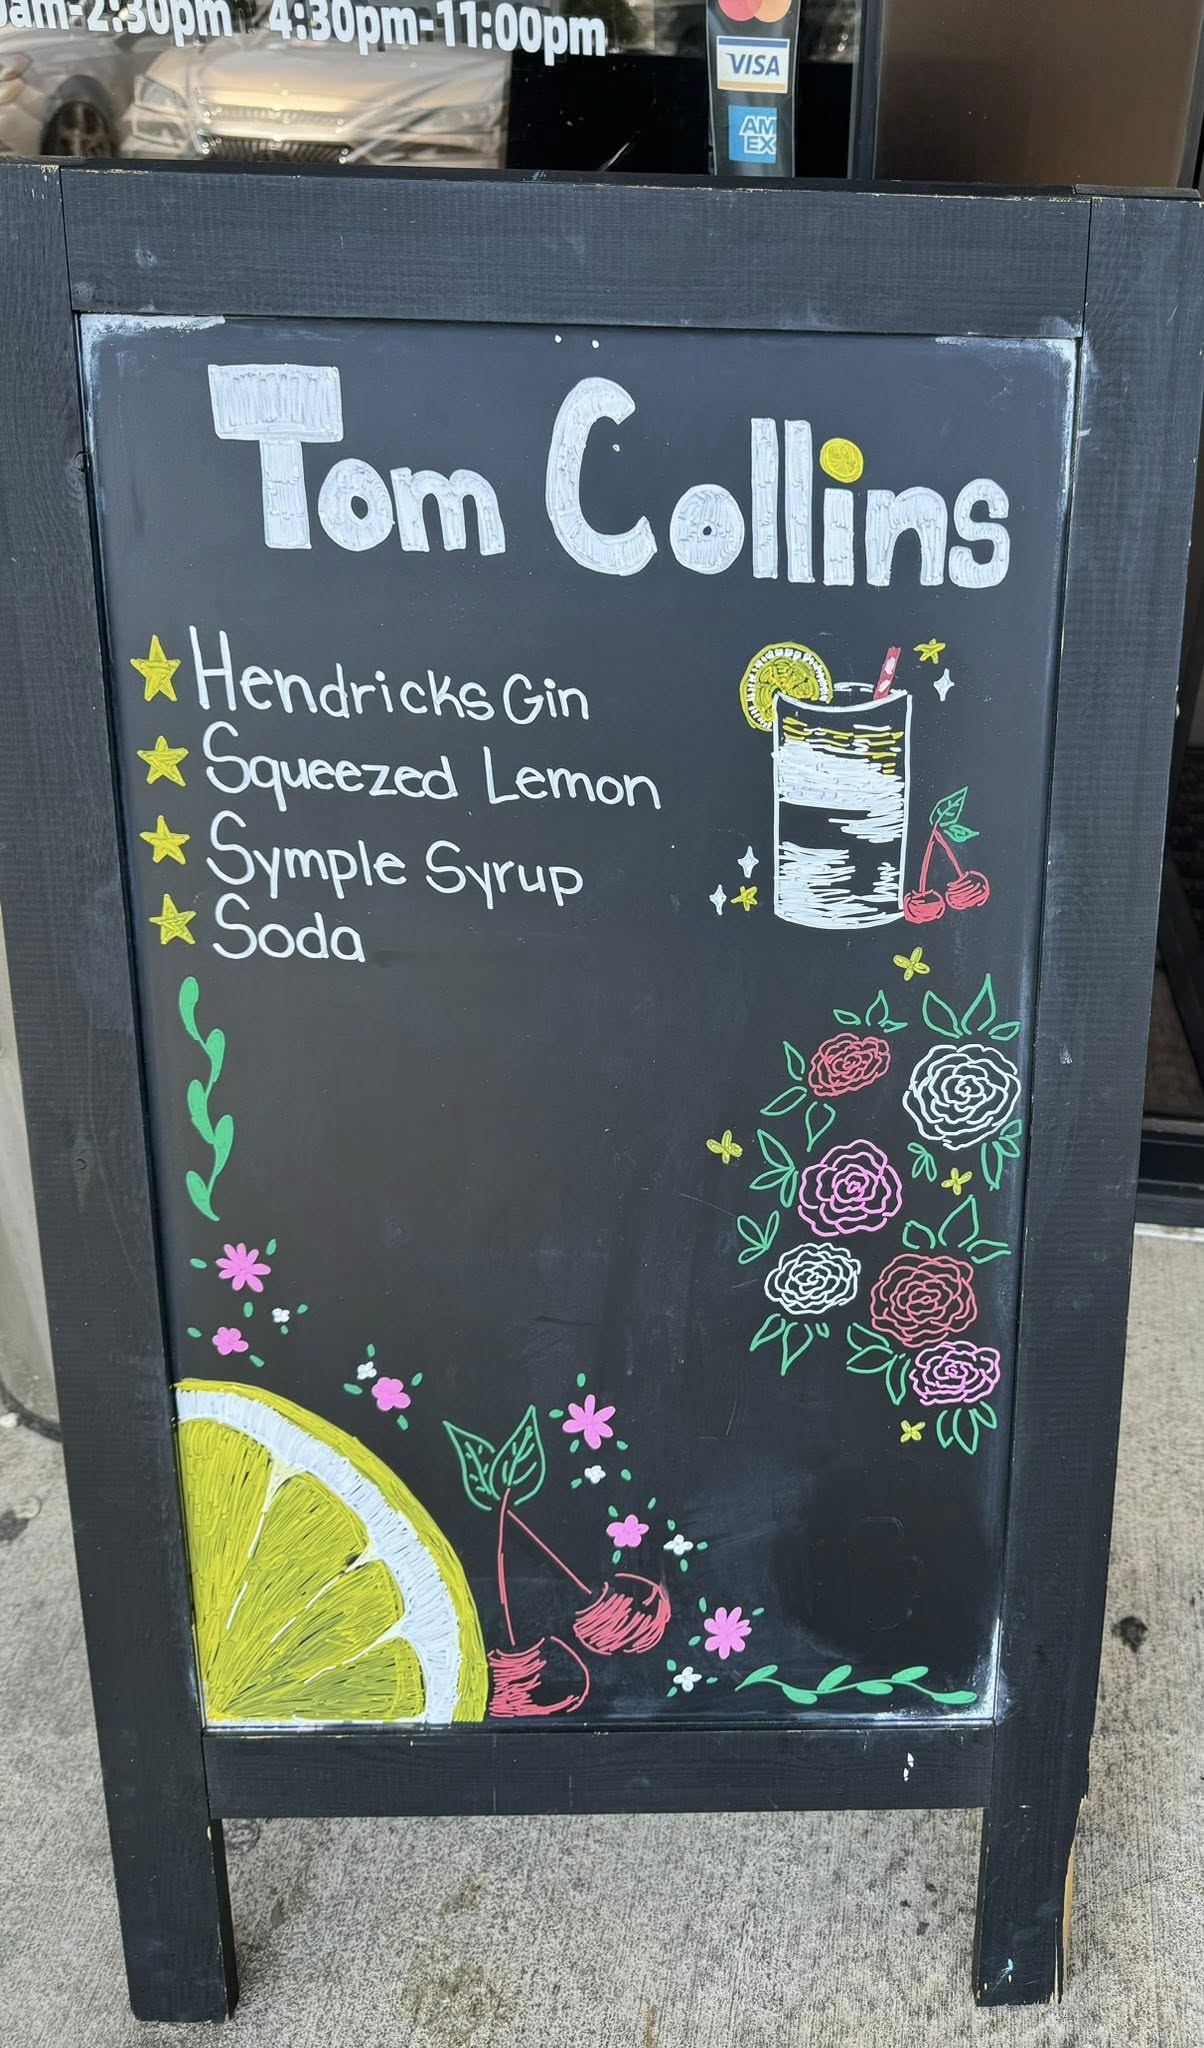 am-2:30pm 4:30pm-11:00pm
VISA
AM
EX
Tom Collins
Hendricks Gin
Squeezed Lemon
Symple Syrup
Soda